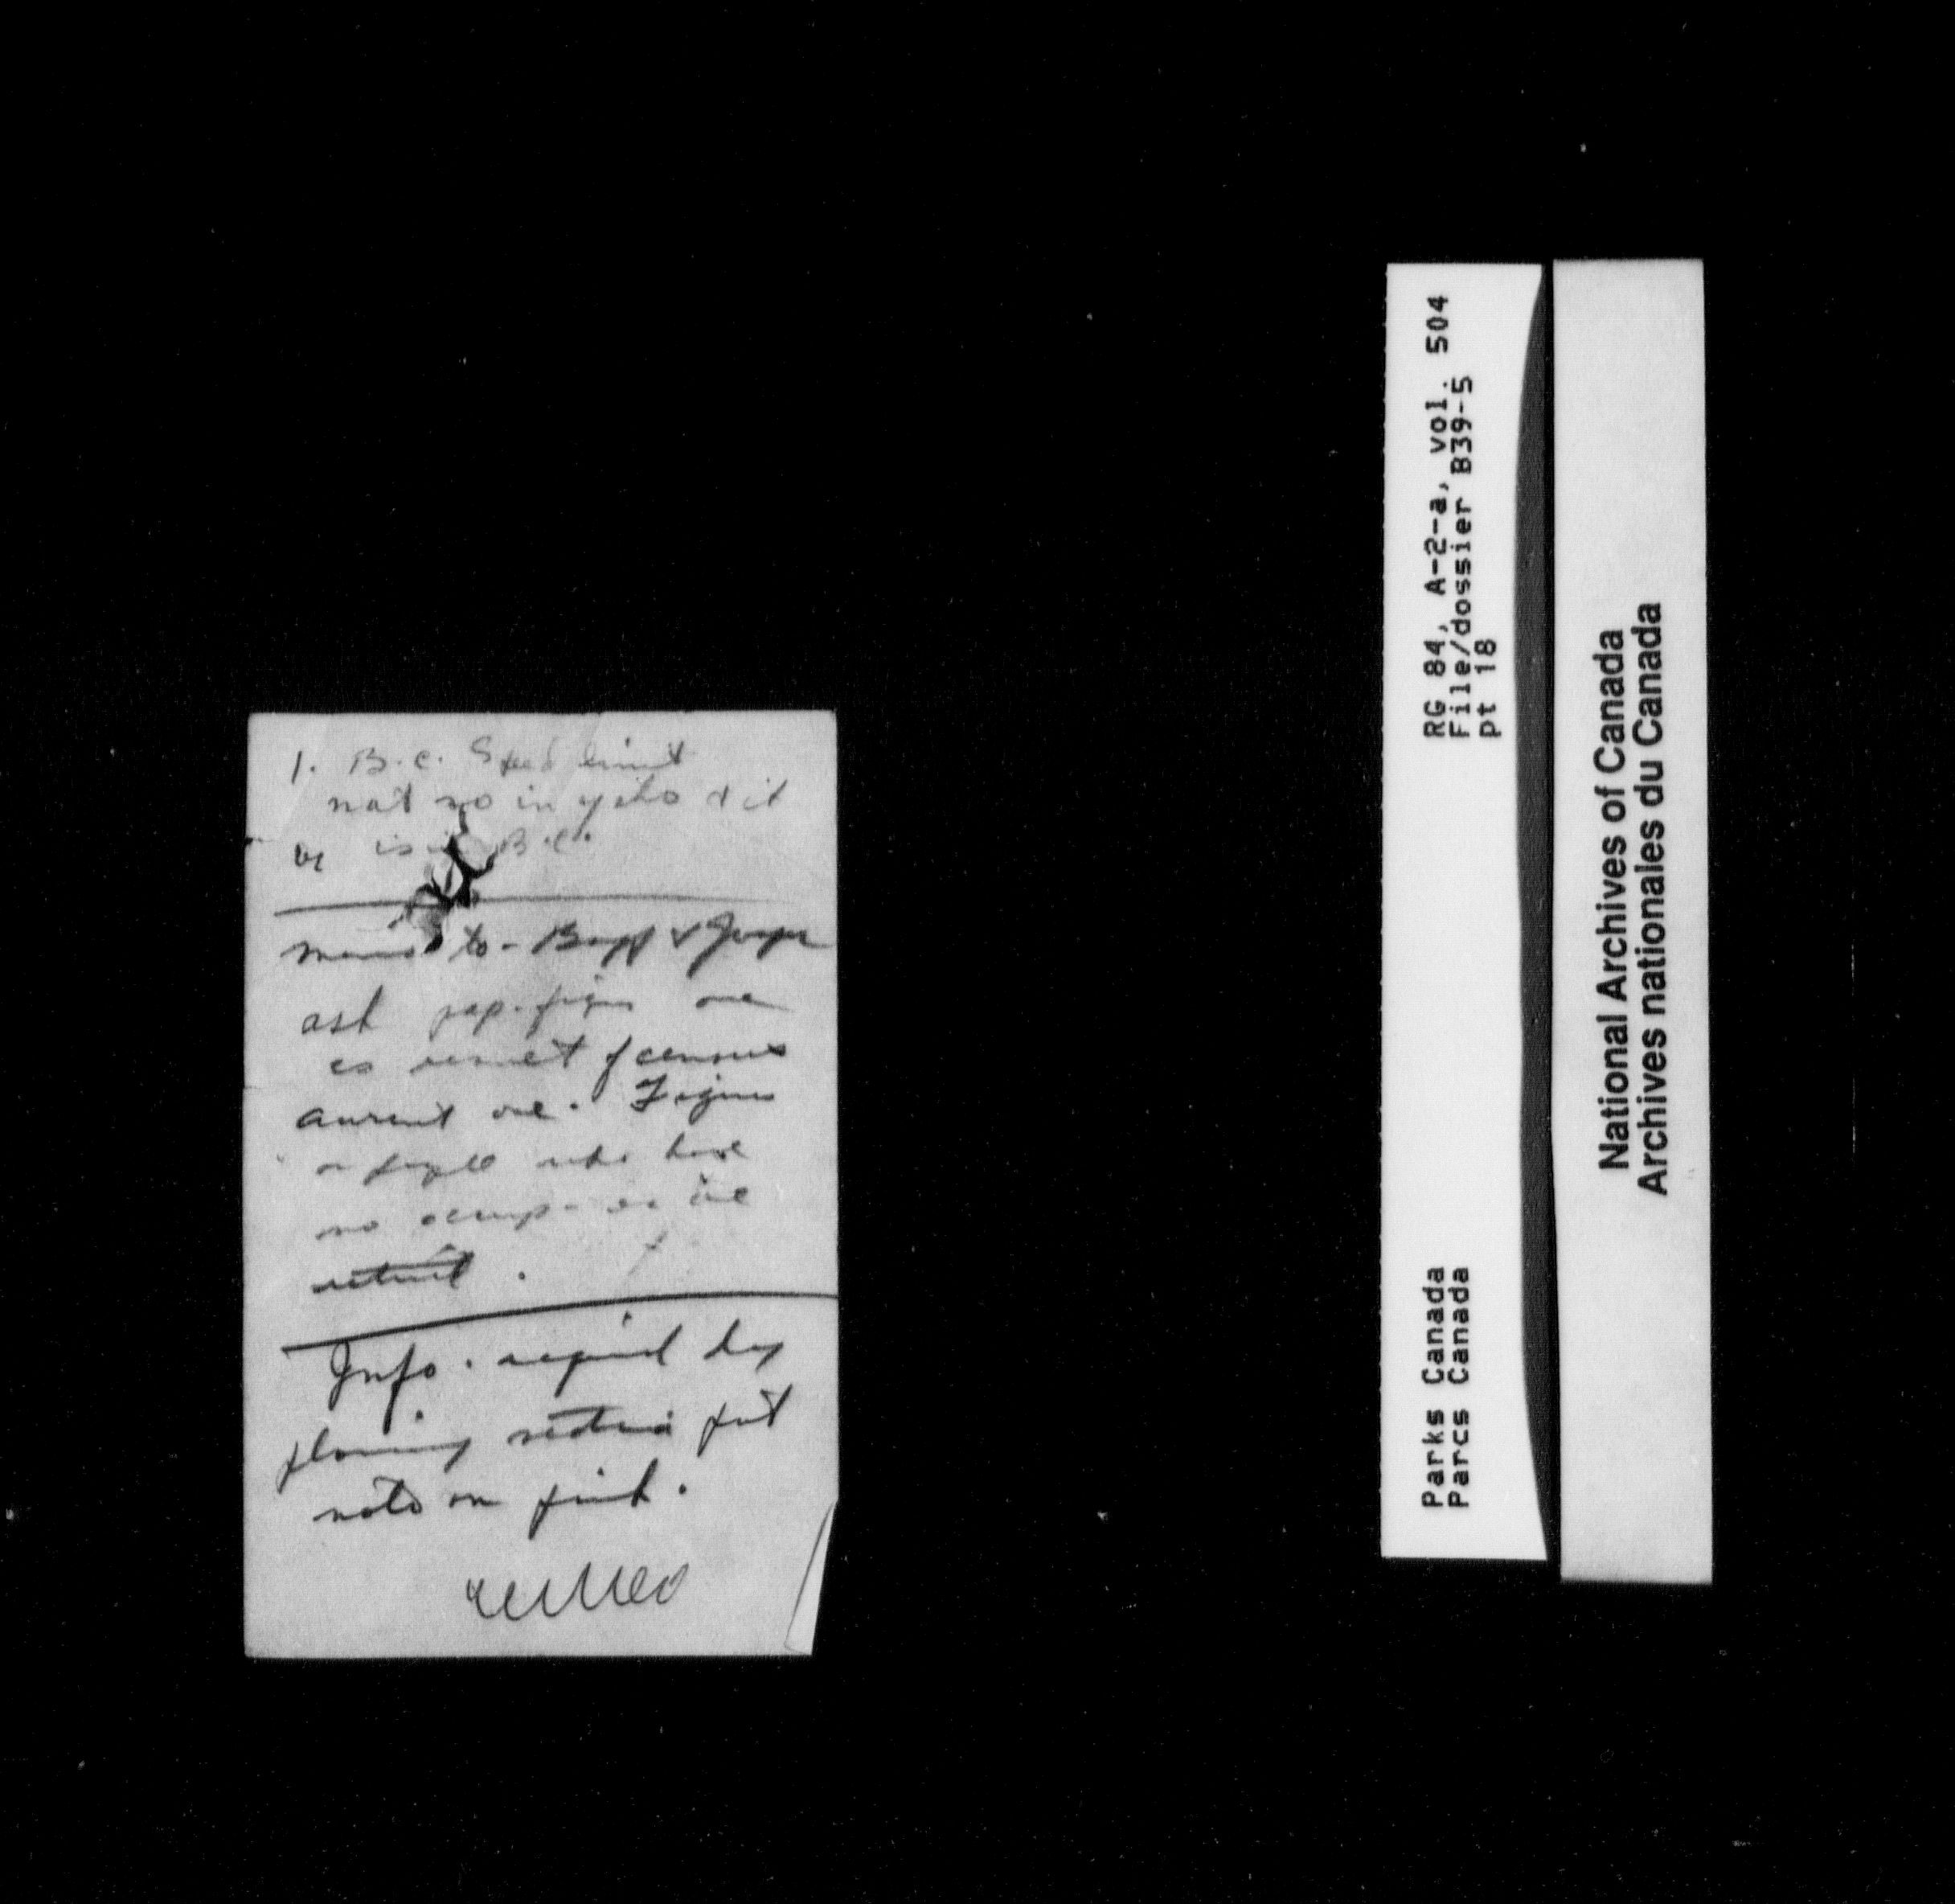 1. B.C. Speed limit
not so in yoho & it
is in B.C.
memo to - Banff & Jasper
ask pop. figures are
as result of census
current one. Figures
on people who have
no occup. or are
retired.
Info. required by
planning section put
note on pink.
RG 84, A-2-a, vol. 504
File/dossier B39-5
pt 18
Parks Canada
Parcs Canada
National Archives of Canada
Archives nationales du Canada